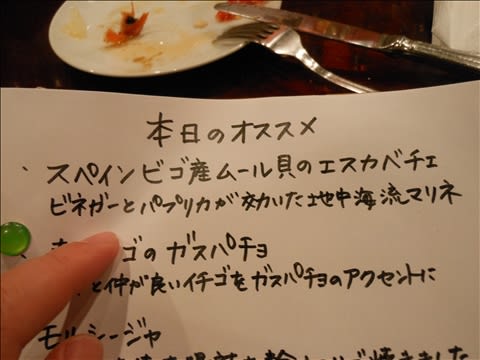 本日のオススメ
、スペインビゴ産ムール貝のエスカベチェ
ビネガーとパプリカが効いた地中海流マリネ
ゴのガスパチョ
と仲が良いイチゴをガスパチョのアクセントに
モルシージャ